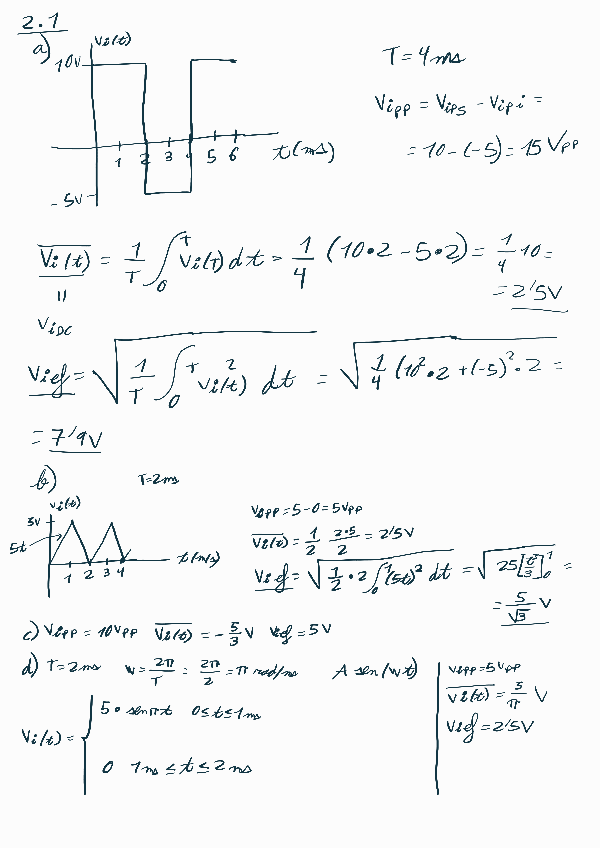 2.1
a)
Vi(t)
10V
1 2 3 4 5 6 t(ms)
-5V
T = 4ms
Vipp = Vips - Vipi =
= 10 - (-5) = 15 Vpp
Vi(t) = 1/T ∫₀ᵀ Vi(t) dt = 1/4 (10•2 - 5•2) = 1/4 10 =
= 2'5V
=
ViDC
Vief = √(1/T ∫₀ᵀ Vi(t)² dt) = √(1/4 (10²•2 + (-5)²•2 =
= 7'9V
b) T=2ms
Vi(t)
5V
5t
1 2 3 4 t(ms)
Vipp = 5-0 = 5Vpp
Vi(t) = 1/2 2•5/2 = 2'5V
Vief = √(1/2 • 2 ∫₀¹ (5t)² dt) = √(25[t³/3]₀¹) =
= 5/√3 V
c) Vipp = 10Vpp Vi(t) = -5/3 V Vief = 5V
d) T=2ms w = 2π/T = 2π/2 = π rad/ms A sen(wt)
Vi(t) = {
5• senπt 0≤t≤1ms
0 1ms ≤ t ≤ 2ms
Vipp = 5Vpp
Vi(t) = 5/π V
Vief = 2'5V